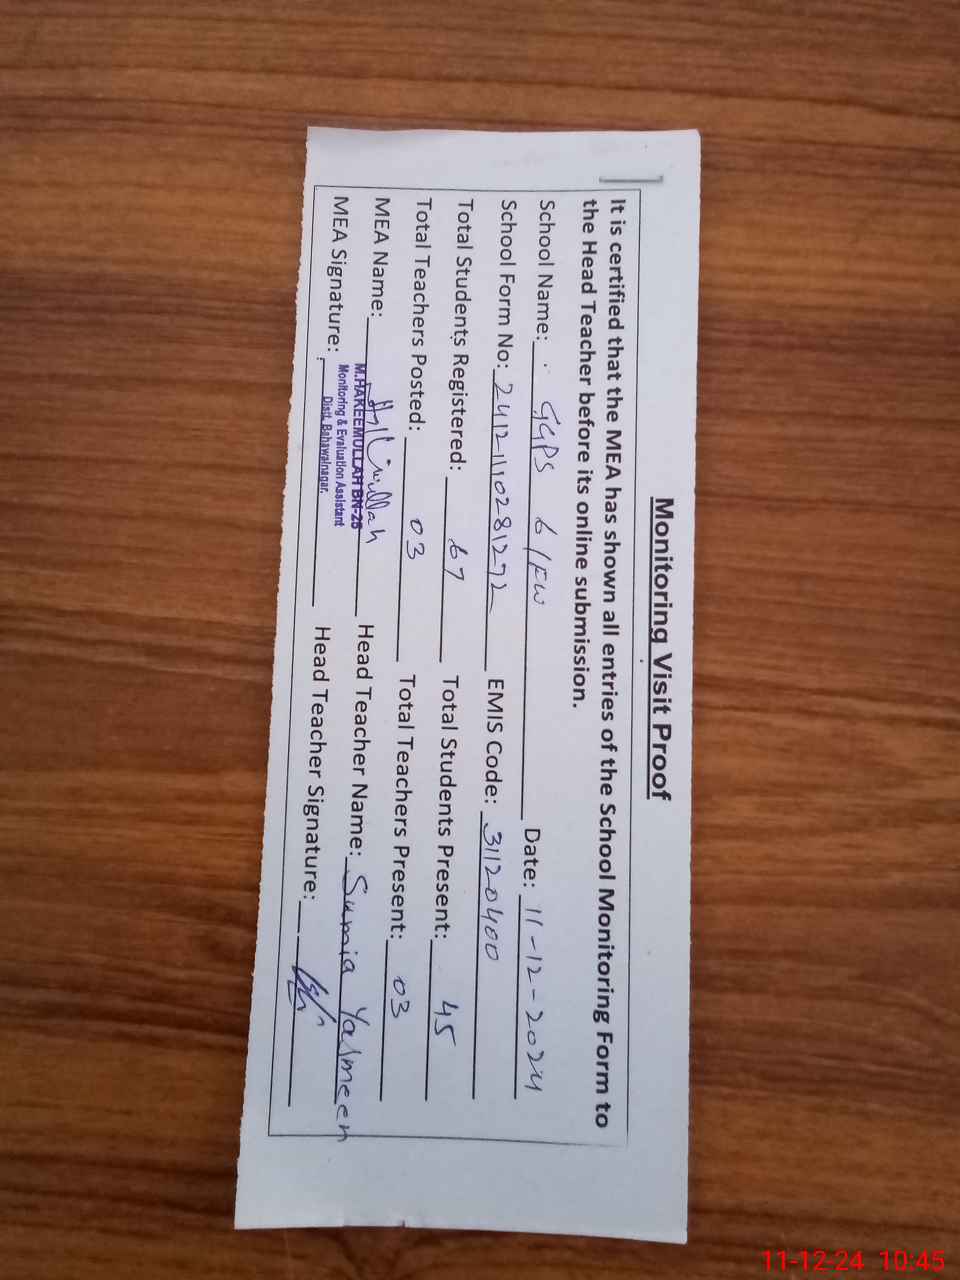 Monitoring Visit Proof
It is certified that the MEA has shown all entries of the School Monitoring Form to
the Head Teacher before its online submission.
School Name: GGPS 6/FW Date: 11-12-2024
School Form No: 241211110281272 EMIS Code: 31120400
Total Students Registered: 67 Total Students Present: 45
Total Teachers Posted: 03 Total Teachers Present: 03
MEA Name: Head Teacher Name: Sumia Yasmeen
M.HAKEEMULLAH BN-25
Monitoring & Evaluation Assistant
Distt. Bahawalnagar.
MEA Signature: Head Teacher Signature:
11-12-24 10:45